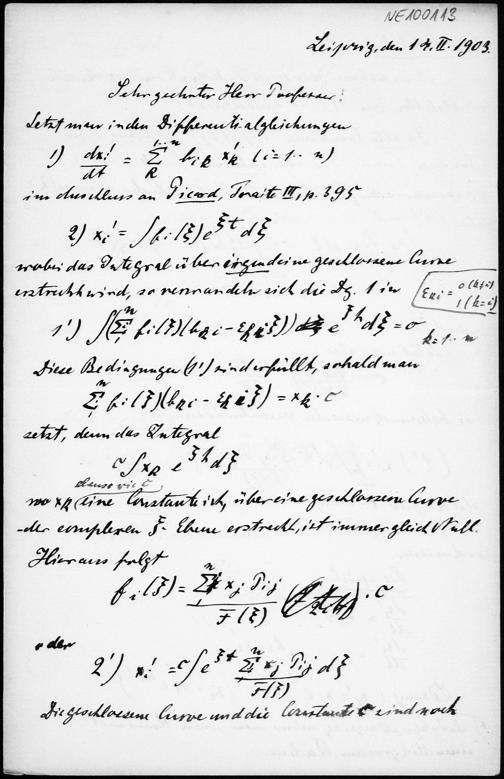 NE100113
Leipzig, den 14. II. 1903.
Sehr geehrter Herr Professor!
Setzt man in den Differentialgleichungen
1) dx_i'/dt = Σ_k^{1..n} b_{ik} x_k' (i=1..n)
im Anschluss an Picard, Traité III, p. 395
2) x_i' = ∫ f_i(ξ) e^{ξt} dξ
wobei das Integral über irgendeine geschlossene Curve
erstreckt wird, so verwandeln sich die Dg. 1 in
ε_{ki} = 0 (k≠i) 1 (k=i)
1') ∫(Σ_i^n f_i(ξ)(b_{ki} − ε_{ki}ξ)) e^{ξt} dξ = 0 k=1..n
Diese Bedingungen (1') sind erfüllt, sobald man
Σ_i^n f_i(ξ)(b_{ki} − ε_{ki}ξ) = x_k · c
setzt, denn das Integral
c ∫ x_k e^{ξt} dξ
ebenso wie c
wo x_k eine Constante ist, über eine geschlossene Curve
der complexen ξ-Ebene erstreckt, ist immer gleich Null.
Hieraus folgt
f_i(ξ) = Σ_j^n x_j P_{ij} / F(ξ) · c
oder
2') x_i' = c ∫ e^{ξt} Σ_j^n x_j P_{ij} / F(ξ) dξ
Die geschlossene Curve und die Constante c sind noch